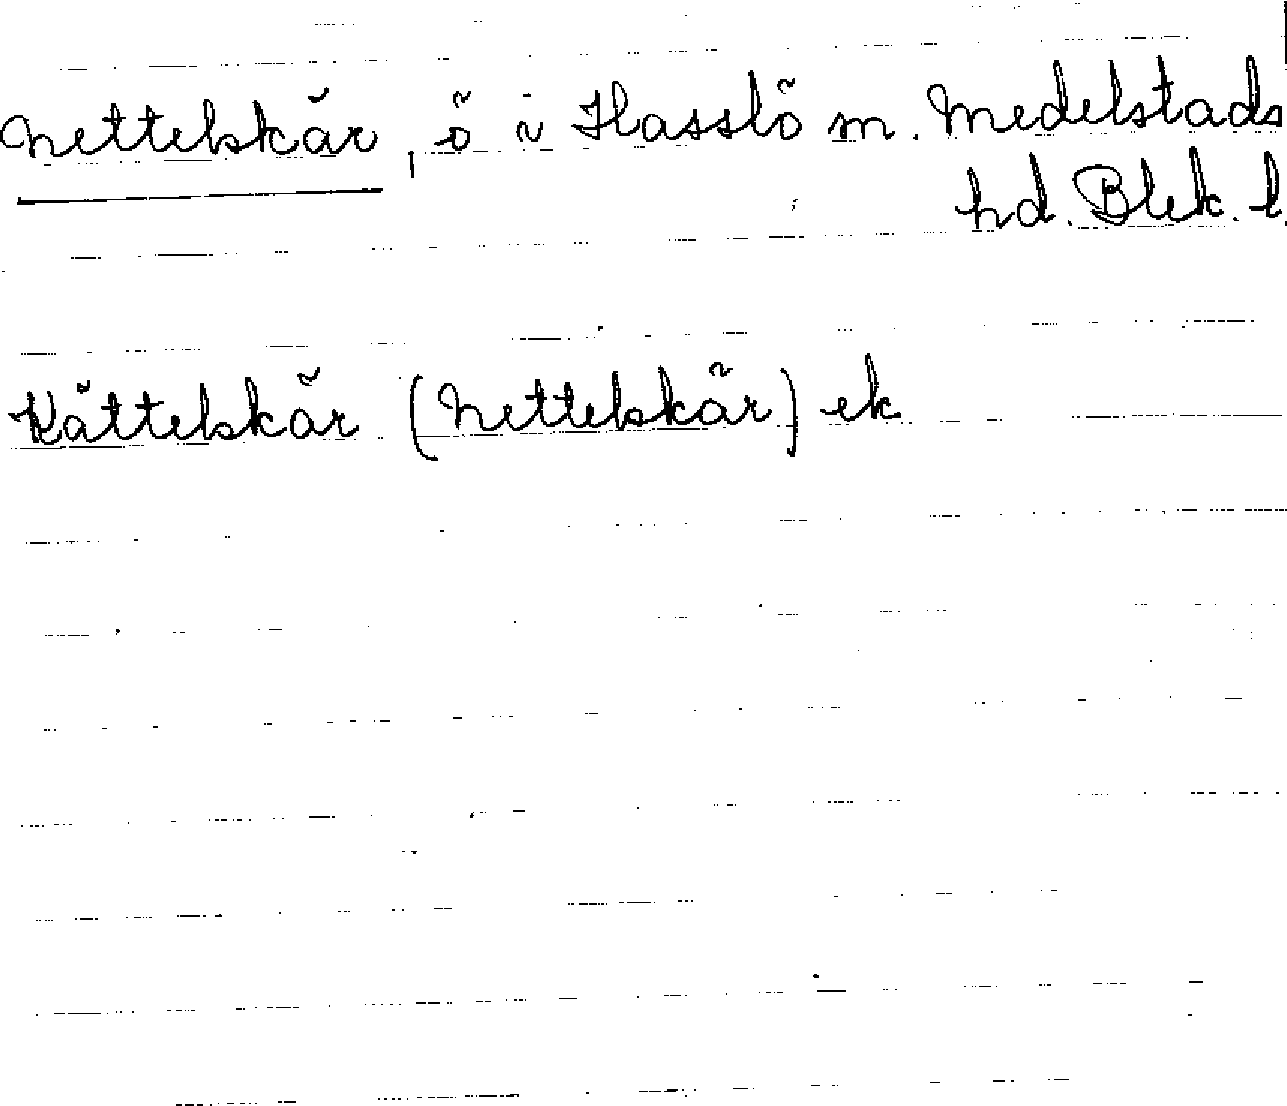 Nettelskär, ö i Hasslö sn. Medelstads
hd. Blek. l.
Kättelskär (Nettelskär) ek